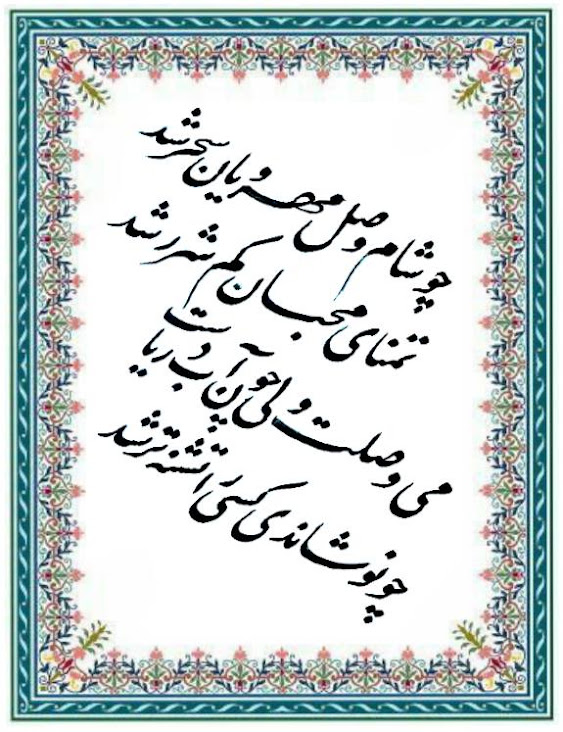 چو شام وصل مهرویان سحر شد
تمنای محبان کم شرر شد
می وصلت ولی چون آب دریاست
چو نوشاندی کسی را تشنه تر شد